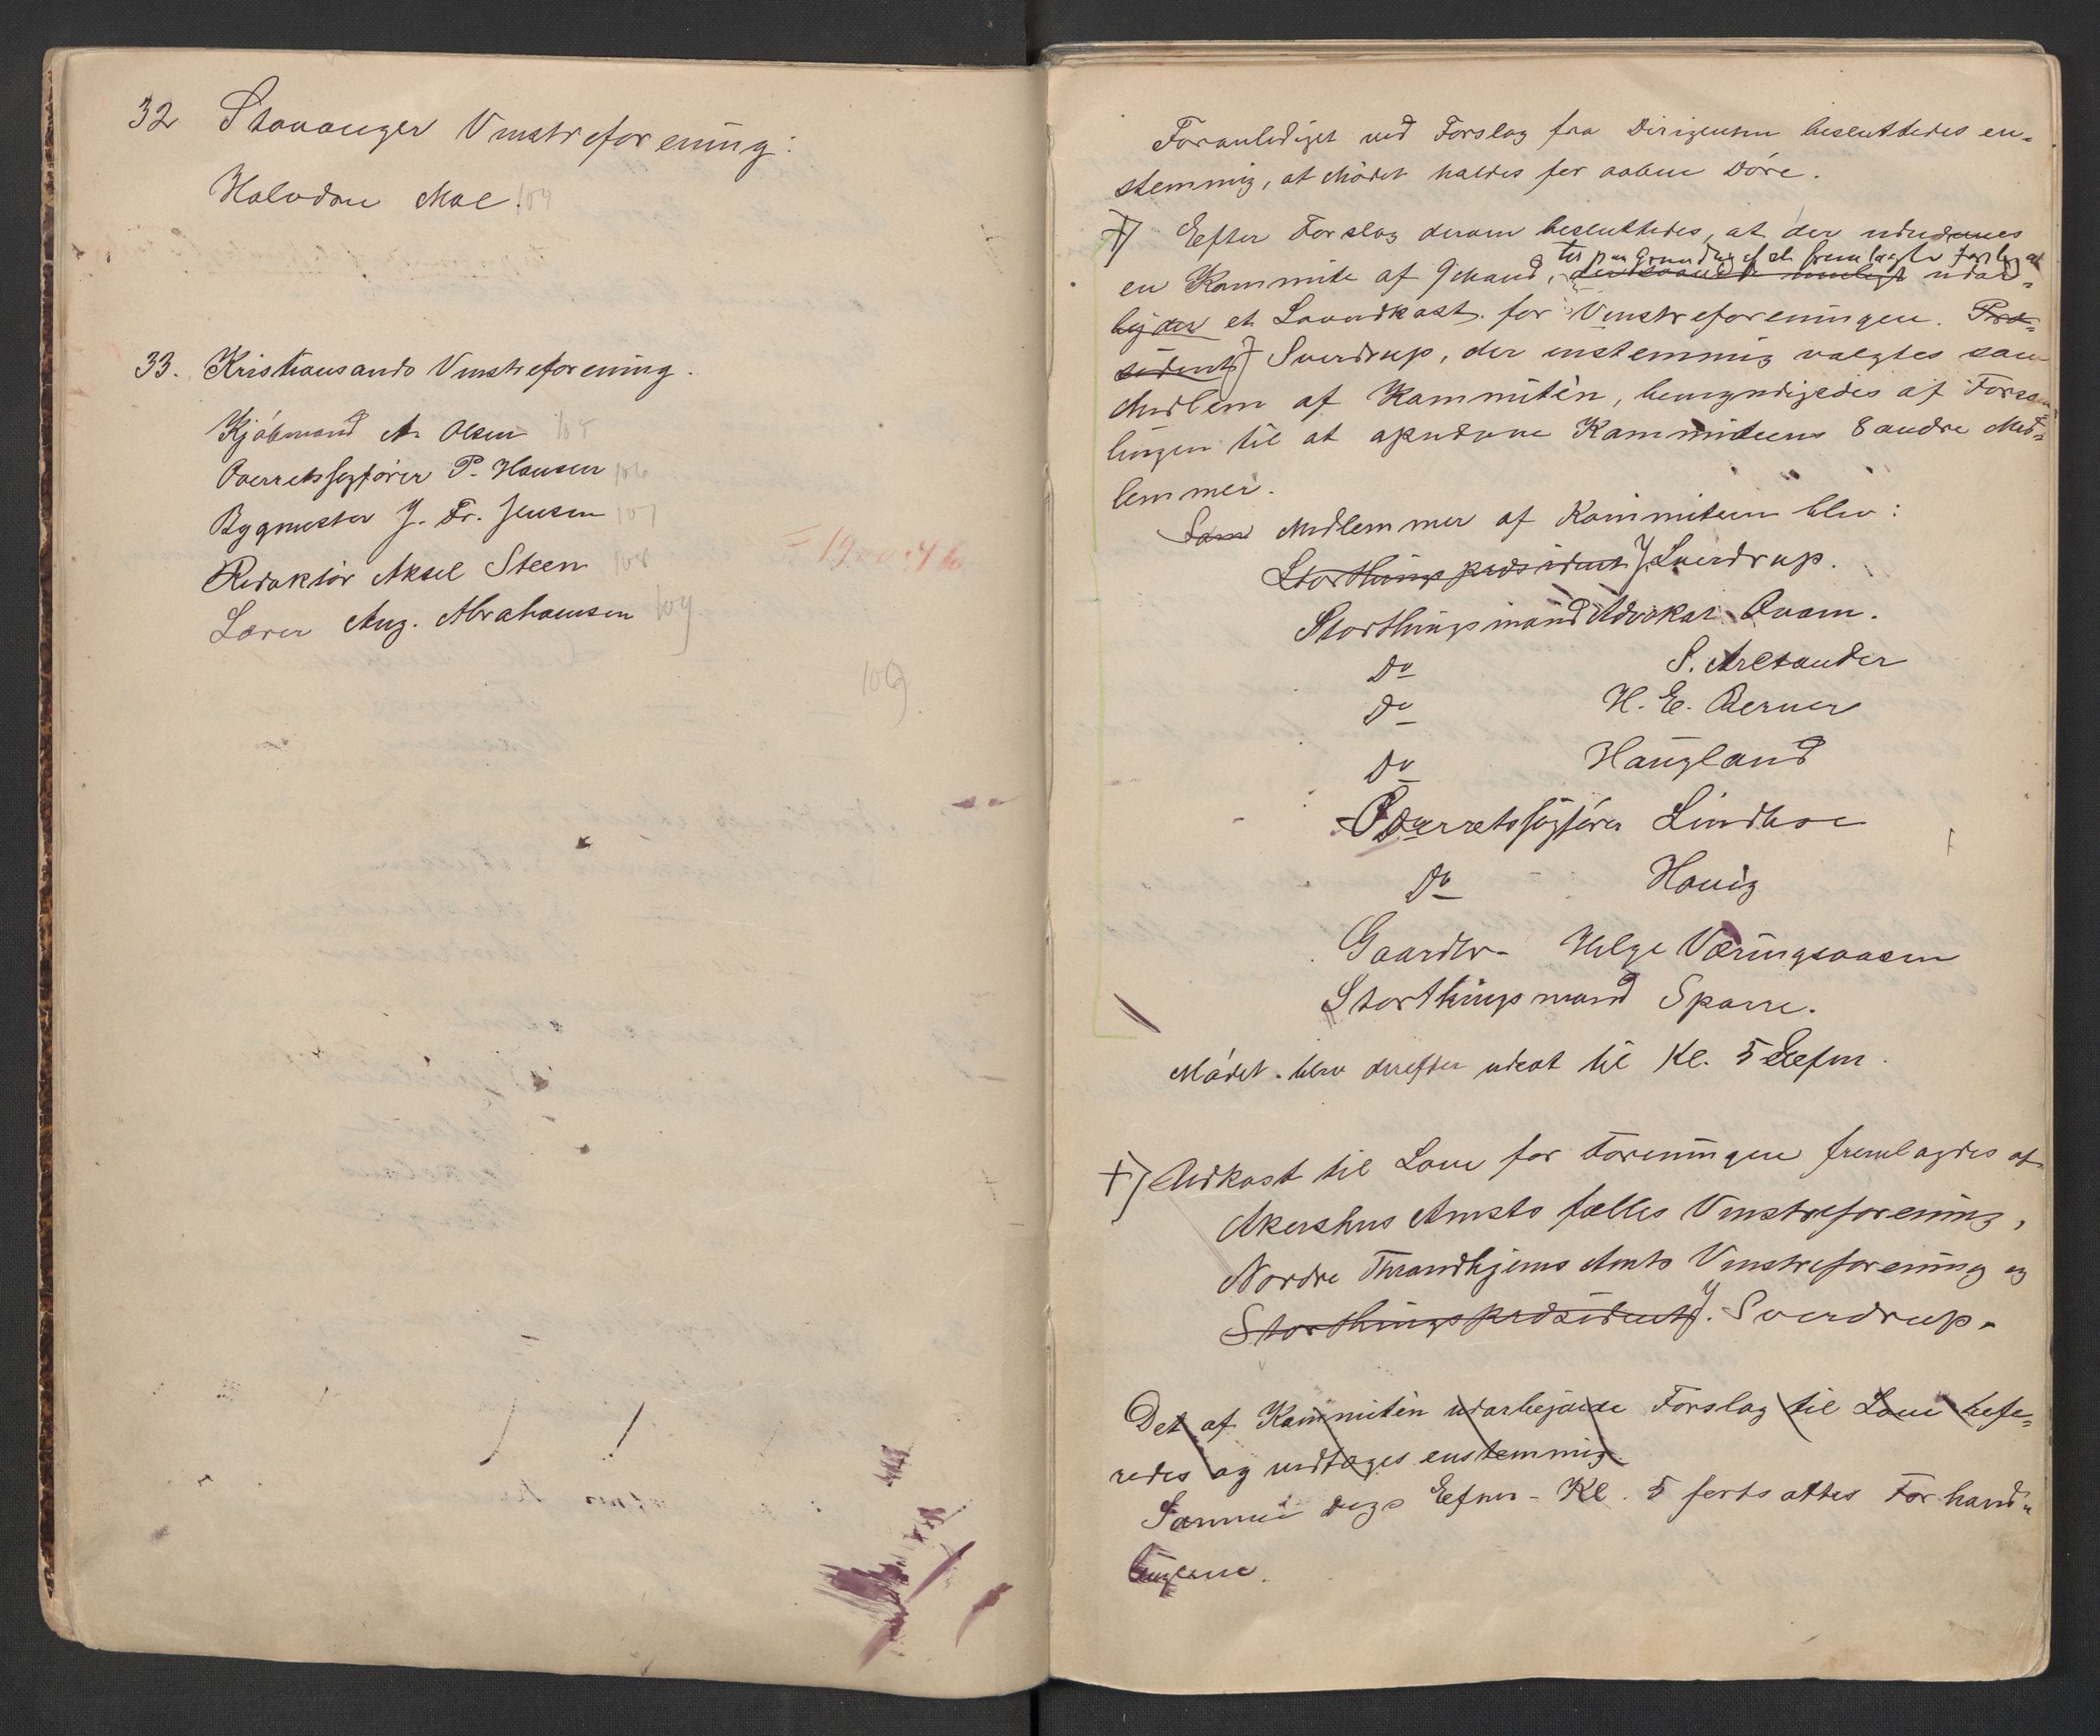 32 Stavanger Venstreforening:
Halvdan Moe. 104
33. Kristiansands Venstreforening.
Kjøbmand A. Olsen 105
Overretssagfører P. Hansen 106
Bygmester J. Fr. Jensen 107
Redaktør Aksel Steen 108
Lærer Aug. Abrahamsen 109.
109.
Foranlediget ved Forslag fra Dirigenten besluttedes en-
stemmig, at Mødet holdes for aabne Døre.
+) Efter Forslag derom besluttedes, at der uduævnes
til paa Grundlag af de fremlagte Forslag at
en Kommite af 9 Mand, udar-
bejder et Lovudkast for Venstreforeningen. Præ-
sident J Sverdrup, der enstemmig valgtes som
Medlem af Kommitéen, bemyndigedes af Forsam-
lingen til at opnævne Kommiteens 8 andre Med-
lemmer.
Som Medlemmer af Kommiteen blev:
Storthingspræsident J. Sverdrup.
Storthingsmand Advokat Qvam.
Do S. Arctander
Do H. E. Berner
Do Haugland
Overretssagfører Lindboe
Do Havig
Gaardbr. Helge Væringsaasen
Storthingsmand Sparre.
Mødet blev derefter udsat til Kl. 5 Eefm.
+) Udkast til Love for Foreningen fremlagdes af
Akershus Amts fælles Venstreforening,
Nordre Throndhjems Amts Venstreforening og
Storthingspræsident J. Sverdrup.
Det af Kommitéen udarbejdede Forslag til Love refe-
redes og vedtoges enstemmig.
Samme Dags Eefm. Kl. 5 fortsattes Forhand-
lingerne.